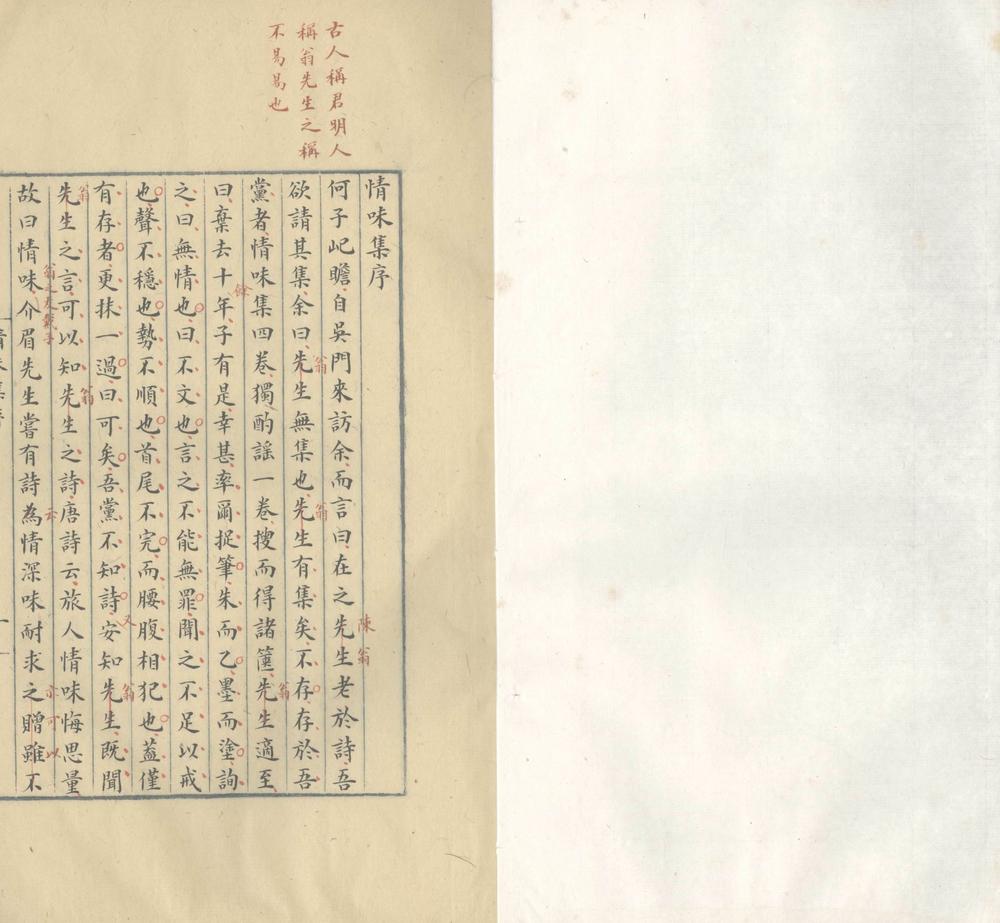 古人稱君明人
稱翁先生之稱
不易易也
情味集序
何子屺瞻自吳門來訪余而言曰在之先生老於詩吾
陳翁
欲請其集余曰先生無集也先生有集矣不存存於吾
翁
翁
黨者情味集四卷獨酌謠一卷搜而得諸篋先生適至
翁
曰棄去十年子有是幸甚率爾捉筆朱而乙墨而塗詢
餘
之曰無情也曰不文也言之不能無罪聞之不足以戒
也聲不穩也勢不順也首尾不完而腰腹相犯也蓋僅
有存者更抹一過曰可矣吾黨不知詩安知先生既聞
又
翁
先生之言可以知先生之詩唐詩云旅人情味悔思量
翁
翁
故曰情味介眉先生嘗有詩為情深味耐求之贈雖不
亦可以